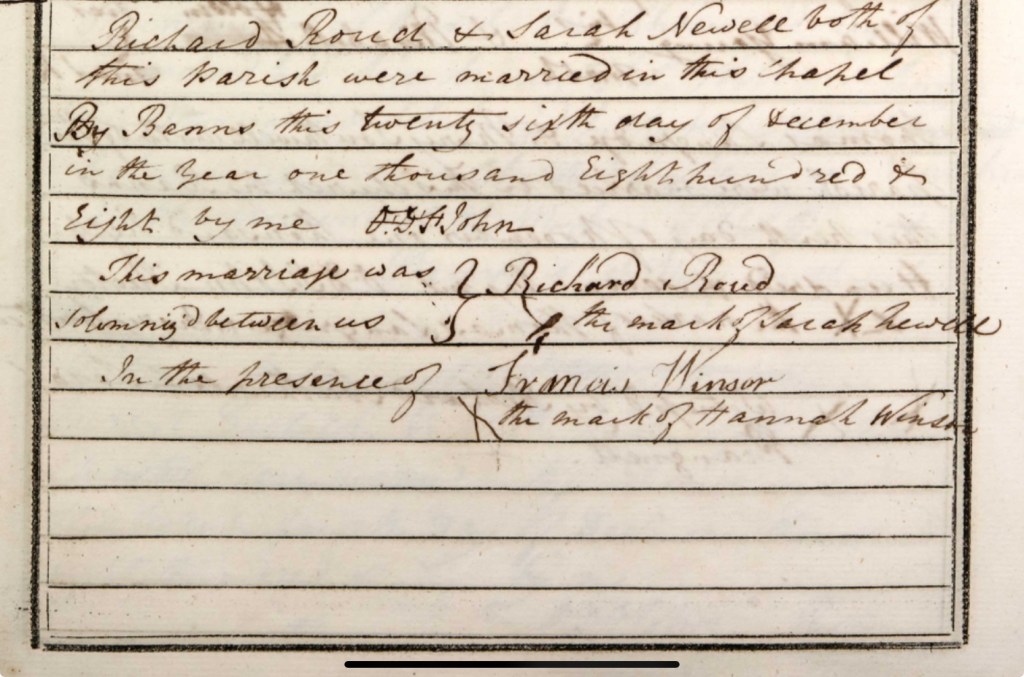 Richard Roud & Sarah Newell both of
this Parish were married in this Chapel
By Banns this twenty sixth day of December
in the Year one thousand Eight hundred &
Eight by me St John
This marriage was Richard Roud
Solemniz'd between us the mark of Sarah Newell
In the presence of Francis Winsor
X the mark of Hannah Winsor